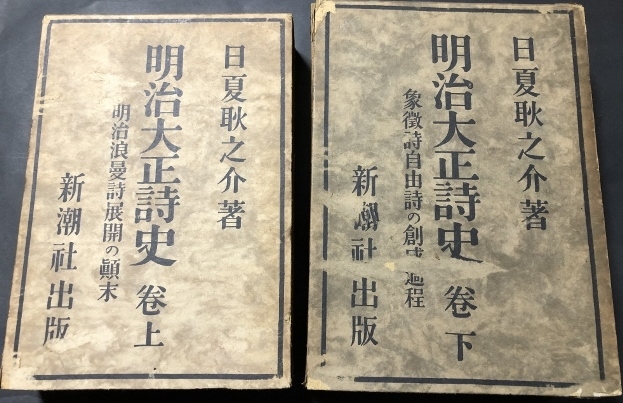 日夏耿之介著
明治大正詩史 卷上
明治浪曼詩展開の顚末
新潮社出版
日夏耿之介著
明治大正詩史 卷下
象徵詩自由詩の創成過程
新潮社出版